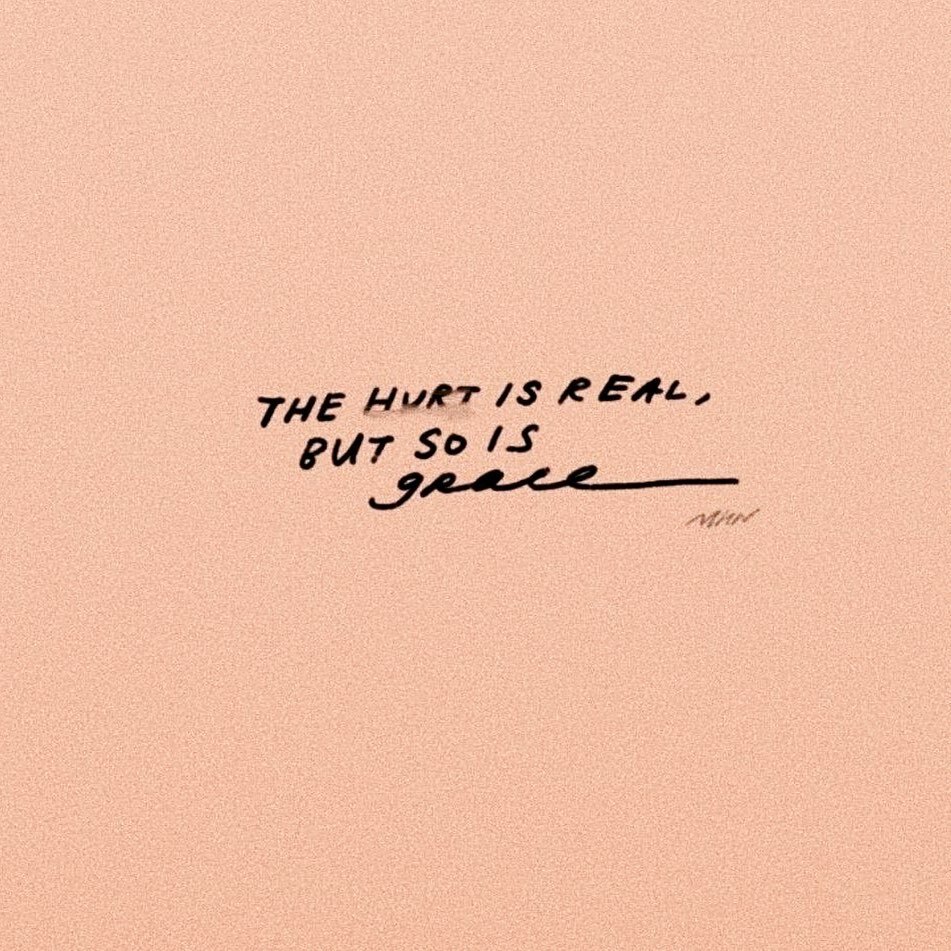 THE HURT IS REAL,
BUT SO IS
grace
MHN